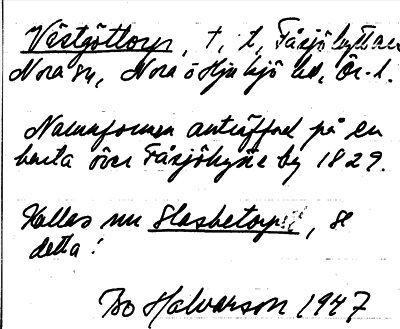 Västgöttorp, t, t, Fåsjöhyttan
Nora sn, Nora o Hjulsjö hd, Ör. l.
Namnformen anträffad på en
karta över Fåsjöhytte by 1829.
Kallas nu Slasbetorpet, se
detta!
Bo Halvarson 1947